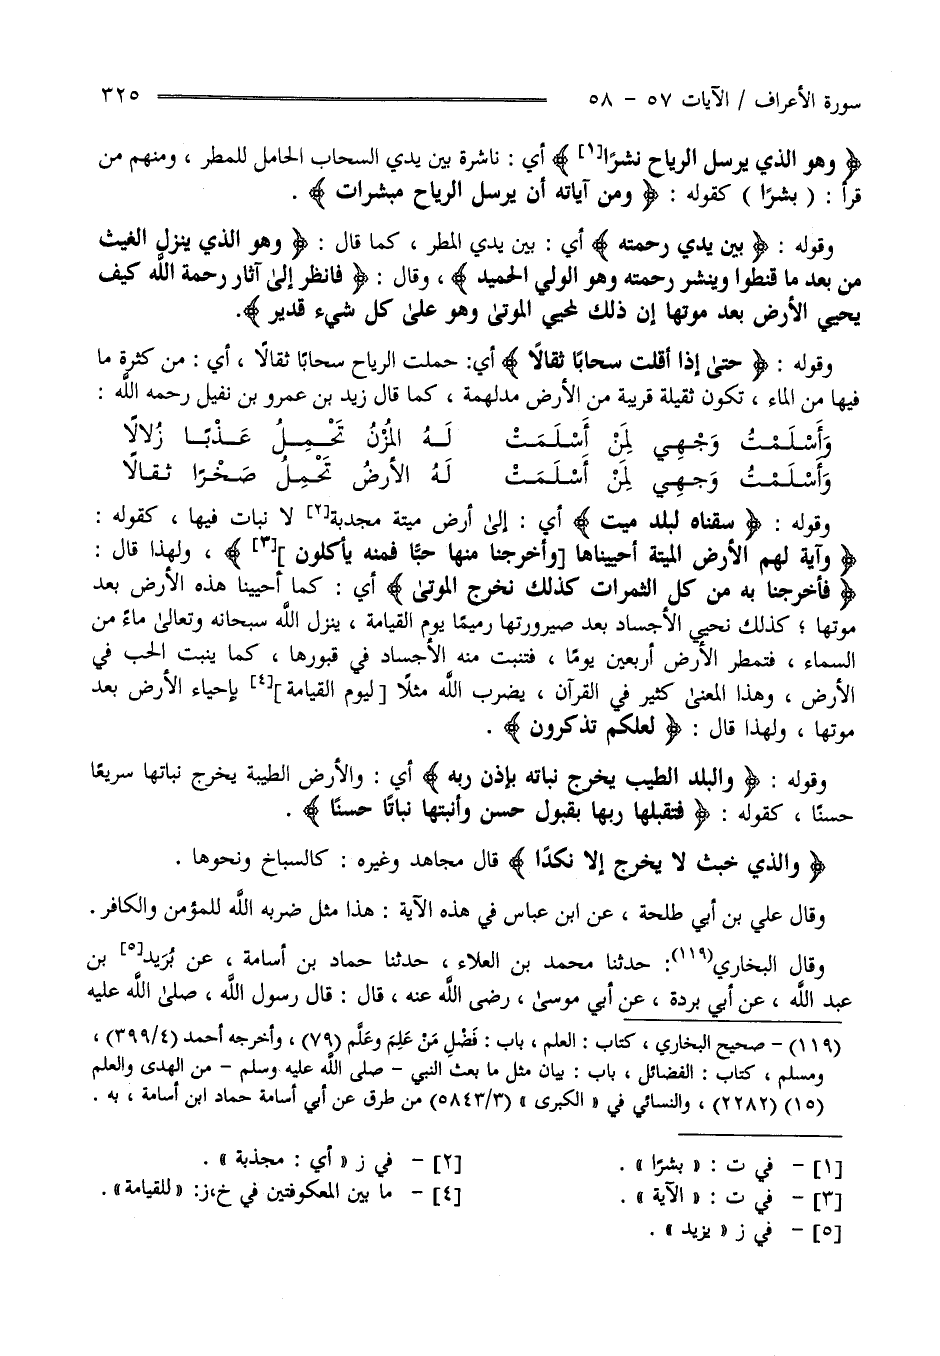 سورة الأعراف / الآيات ٥٧ – ٥٨ ٣٢٥
﴿ وهو الذي يرسل الرياح نشرًا[١] ﴾ أي : ناشرة بين يدي السحاب الحامل للمطر ، ومنهم من
قرأ : ( بشرًا ) كقوله : ﴿ ومن آياته أن يرسل الرياح مبشرات ﴾ .
وقوله : ﴿ بين يدي رحمته ﴾ أي : بين يدي المطر ، كما قال : ﴿ وهو الذي ينزل الغيث
من بعد ما قنطوا وينشر رحمته وهو الولي الحميد ﴾ ، وقال : ﴿ فانظر إلىٰ آثار رحمة اللَّه كيف
يحيي الأرض بعد موتها إن ذلك لمحيي الموتىٰ وهو علىٰ كل شيء قدير ﴾.
وقوله : ﴿ حتىٰ إذا أقلت سحابًا ثقالًا ﴾ أي: حملت الرياح سحابًا ثقالًا ، أي : من كثرة ما
فيها من الماء ، تكون ثقيلة قريبة من الأرض مدلهمة ، كما قال زيد بن عمرو بن نفيل رحمه اللَّه :
وَأَسْلَمْتُ وَجْهِي لِمَنْ أَسْلَمَتْ لَهُ المُزْنُ تَحْمِلُ عَذْبًا زُلالًا
وَأَسْلَمْتُ وَجهِي لِمَنْ أَسْلَمَتْ لَهُ الأرضُ تَحْمِلُ صَخْرًا ثقالًا
وقوله : ﴿ سقناه لبلد ميت ﴾ أي : إلىٰ أرض ميتة مجدبة[٢] لا نبات فيها ، كقوله :
﴿ وآية لهم الأرض الميتة أحييناها [وأخرجنا منها حبًّا فمنه يأكلون ][٣] ﴾ ، ولهذا قال :
﴿ فأخرجنا به من كل الثمرات كذلك نخرج الموتىٰ ﴾ أي : كما أحيينا هذه الأرض بعد
موتها ؛ كذلك نحيي الأجساد بعد صيرورتها رميمًا يوم القيامة ، ينزل اللَّه سبحانه وتعالىٰ ماءً من
السماء ، فتمطر الأرض أربعين يومًا ، فتنبت منه الأجساد في قبورها ، كما ينبت الحب في
الأرض ، وهذا المعنىٰ كثير في القرآن ، يضرب اللَّه مثلًا [ليوم القيامة ][٤] بإحياء الأرض بعد
موتها ، ولهذا قال : ﴿ لعلكم تذكرون ﴾ .
وقوله : ﴿ والبلد الطيب يخرج نباته بإذن ربه ﴾ أي : والأرض الطيبة يخرج نباتها سريعًا
حسنًا ، كقوله : ﴿ فتقبلها ربها بقبول حسن وأنبتها نباتًا حسنًا ﴾ .
﴿ والذي خبث لا يخرج إلا نكدًا ﴾ قال مجاهد وغيره : كالسباخ ونحوها .
وقال علي بن أبي طلحة ، عن ابن عباس في هذه الآية : هذا مثل ضربه اللَّه للمؤمن والكافر.
وقال البخاري(١١٩): حدثنا محمد بن العلاء ، حدثنا حماد بن أسامة ، عن بُرَيد[٥] بن
عبد اللَّه ، عن أبي بردة ، عن أبي موسىٰ ، رضي اللَّه عنه ، قال : قال رسول اللَّه ، صلىٰ اللَّه عليه
(١١٩) – صحيح البخاري ، كتاب : العلم ، باب : فَضْلِ مَنْ عَلِمَ وعَلَّم (٧٩) ، وأخرجه أحمد (٣٩٩/٤) ،
ومسلم ، كتاب : الفضائل ، باب : بيان مثل ما بعث النبي – صلى اللَّه عليه وسلم – من الهدى والعلم
(١٥) (٢٢٨٢) ، والنسائي في « الكبرى » (٥٨٤٣/٣) من طرق عن أبي أسامة حماد ابن أسامة ، به .
[١] – في ت : « بشرًا » . [٢] – في ز « أي : مجذبة » .
[٣] – في ت : « الآية » . [٤] – ما بين المعكوفتين في خ،ز: «للقيامة».
[٥] – في ز « يزيد » .